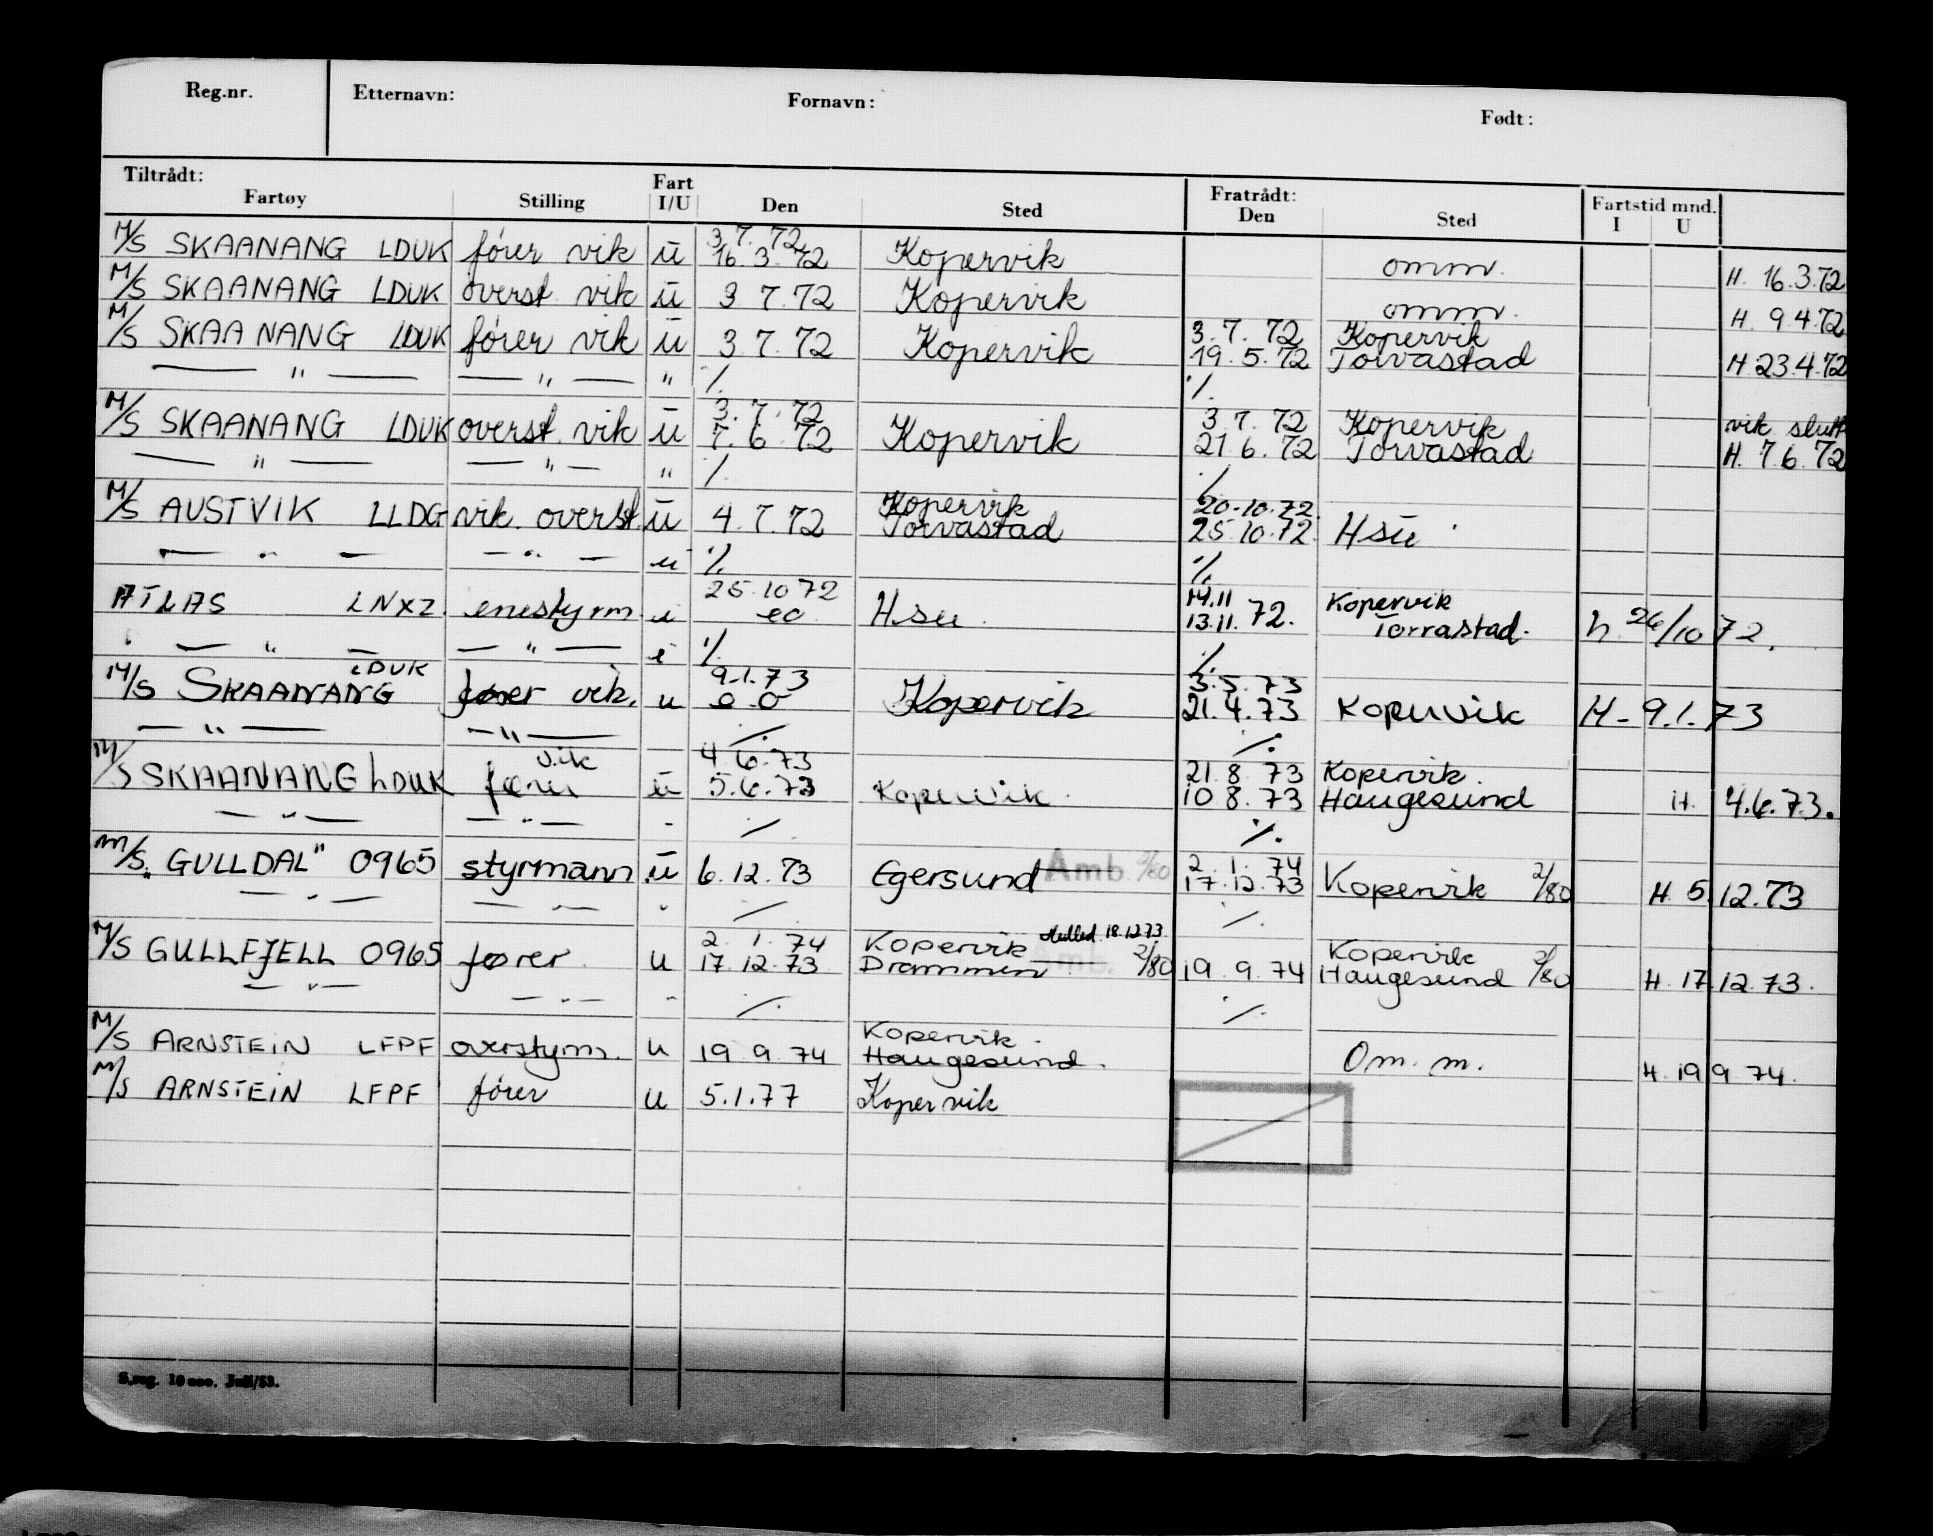 Reg.nr. Etternavn: Fornavn: Født:
Tiltrådt: Fart Fratrådt: Fartstid mnd.
Fartøy Stilling I/U Den Sted Den Sted I U
3.7.72
M/S SKAANANG LDUK fører vik ū 16.3.72 Kopervik omm. H. 16.3.72
M/S SKAANANG LDUK overst. vik ū 3 7.72 Kopervik omm. H. 9.4.72
3.7.72 Kopervik
M/S SKAANANG LDUK fører vik ū 3 7.72 Kopervik 19.5.72 Torvastad H 23.4.72
— " — — " — " ./. ./.
3.7.72 3 7.72 Kopervik vik slutt
M/S SKAANANG LDUK overst. vik ū 7.6.72 Kopervik 21 6.72 Torvastad H. 7.6.72
— " — — " — " ./. ./.
Kopervik 20.10.72
M/S AUSTVIK LLDG vik. overst. ū 4.7.72 Torvastad 25.10.72 Hsu
— " — — " — u ./. ./.
25.10 72 14.11 Kopervik
ATLAS LNXZ. enestyrm. i eo Hsu. 13.11. 72. Torvastad. h 26/10 72.
— " — — " — i ./. ./.
LDUK 9.1.73 3.5.73
M/S SKAANANG fører vik. u eo Kopervik 21.4.73 Kopervik H - 9.1.73
— " — — " — ./. ./.
vik 4.6.73 21.8.73 Kopervik.
M/S SKAANANG LDUK fører ū 5.6.73 Kopervik. 10 8.73 Haugesund H. 4.6.73.
— " — — " — - ./. ./.
2.1.74
M/S. GULLDAL" 0965 styrmann ū 6.12.73 Egersund Amb. 2/80 17.12.73 Kopervik 2/80 H 5.12.73
— " — — " — " ./. ./.
2.1.74 Kopervik 18.12.73 Kopervik
M/S GULLFJELL 0965 fører u 17.12.73 Drammen Amb. 2/80 19.9.74 Haugesund 2/80 H 17.12.73.
— " — — " — " ./. ./.
Kopervik.
M/S ARNSTEIN LFPF overstyrm. u 19.9.74 Haugesund. Om. m. H. 19.9.74.
M/S ARNSTEIN LFPF fører u 5.1.77 Kopervik
S.reg. 10 000. Juli/53.